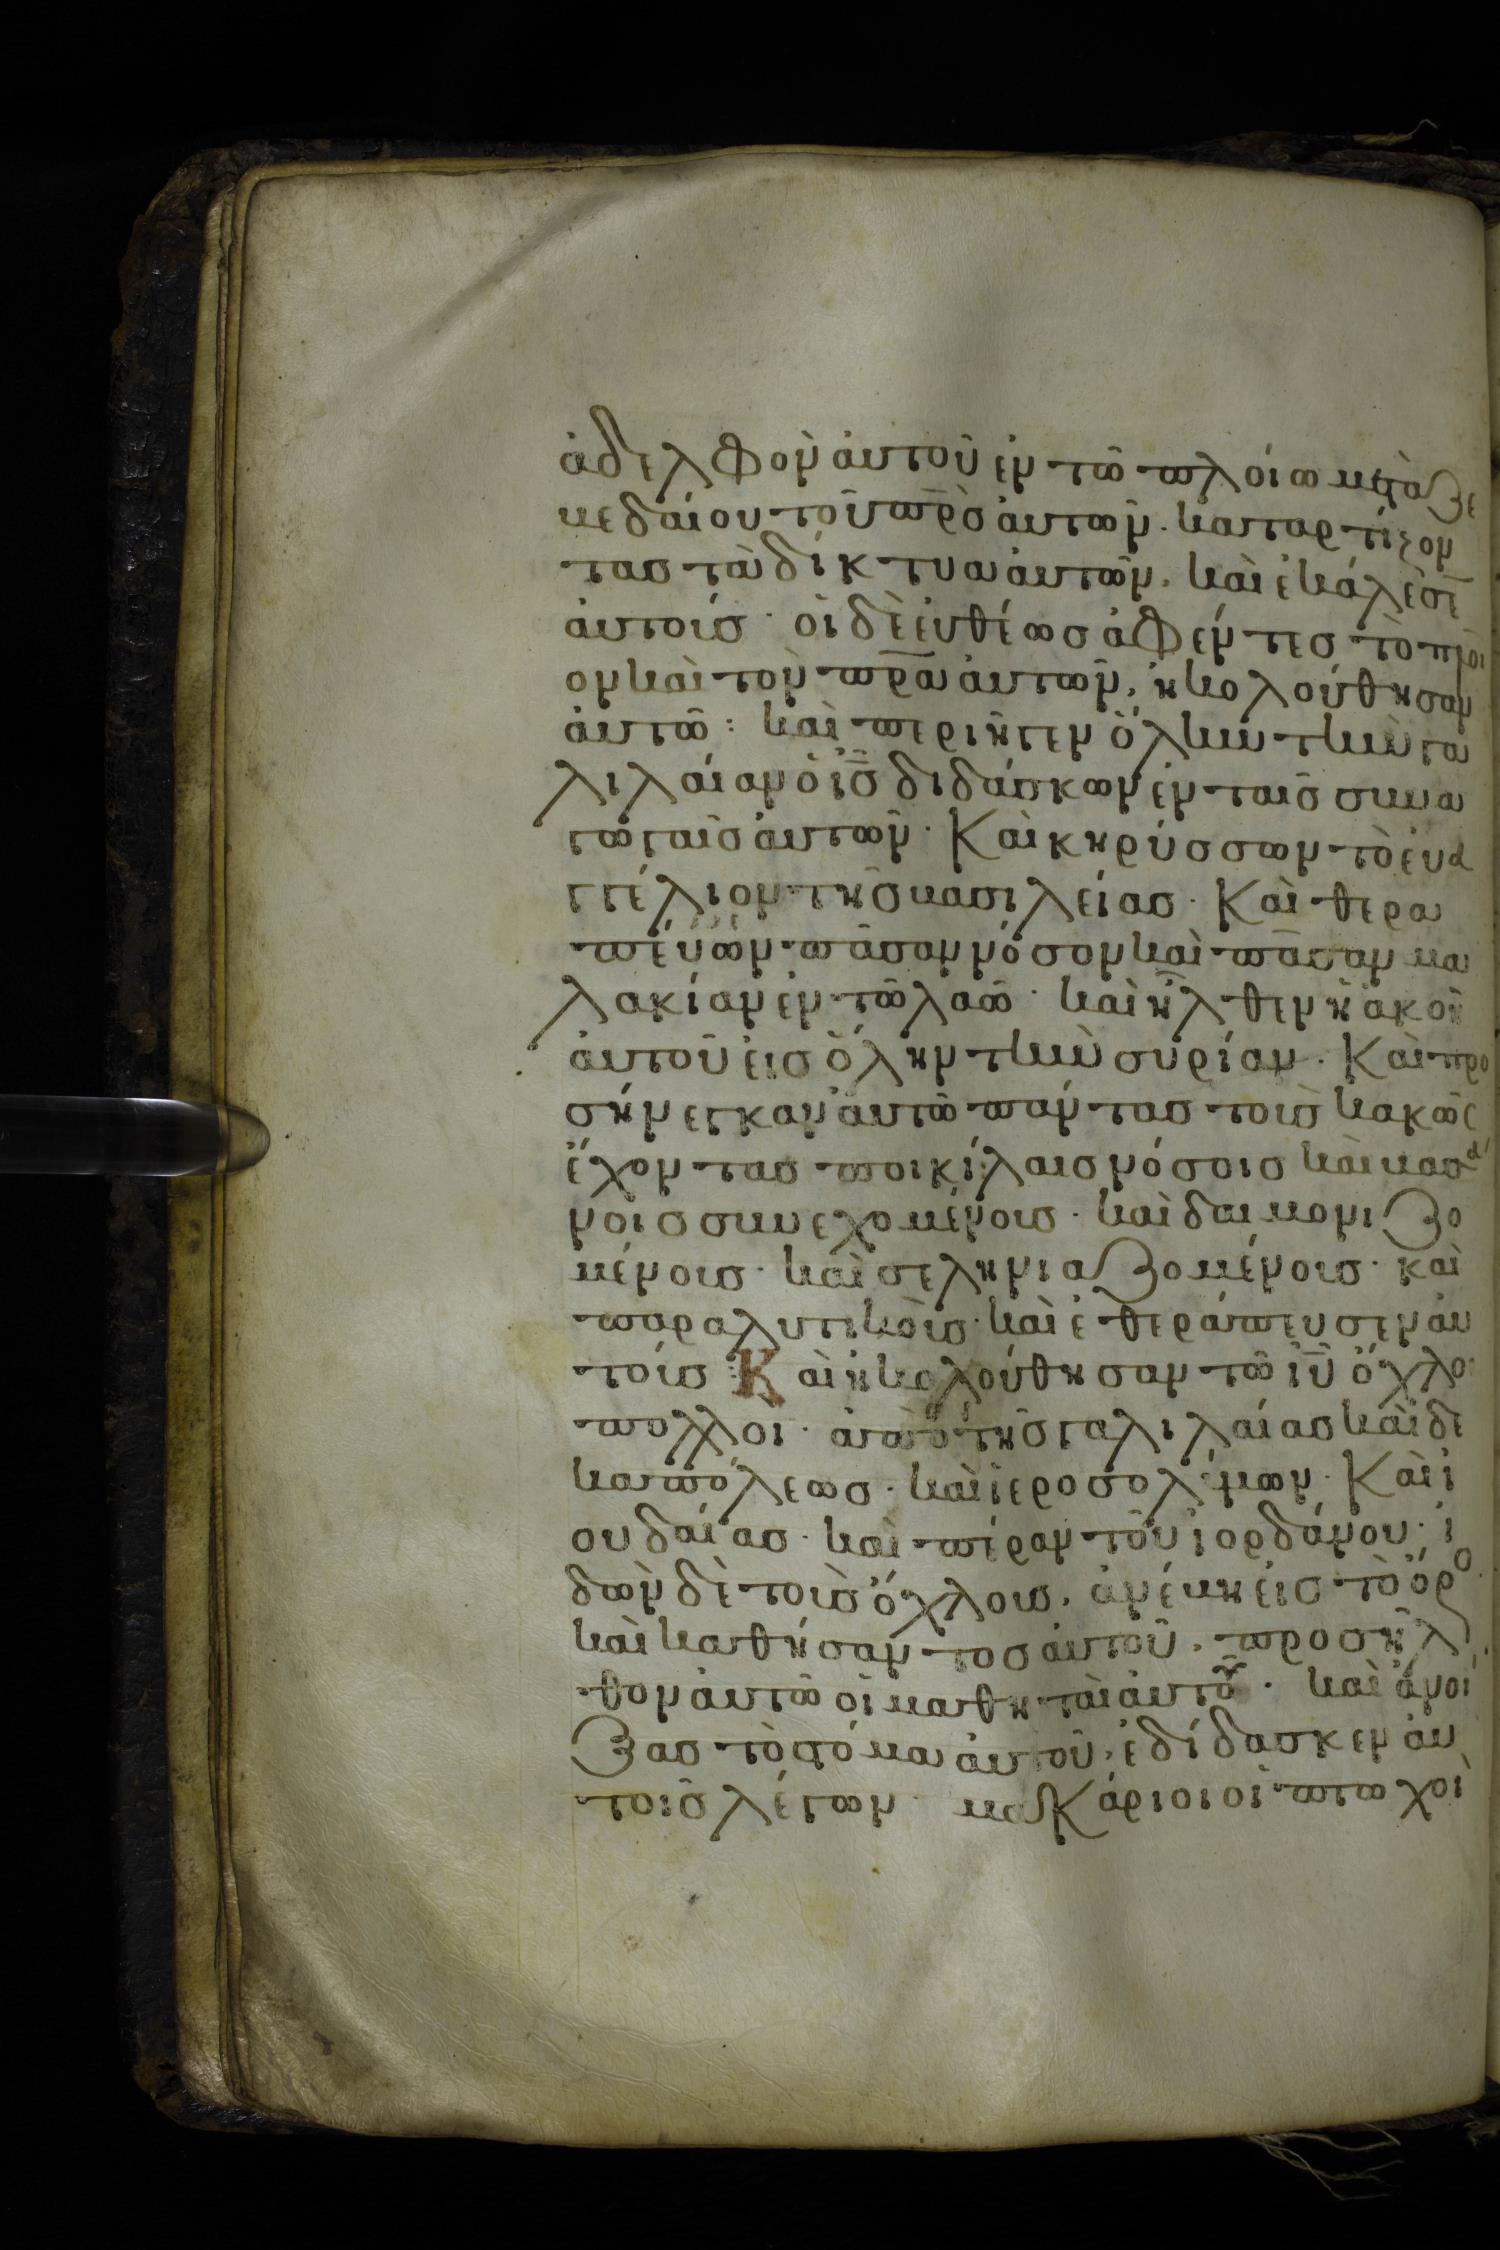 ἀδελφὸν ἀυτοῦ ἐν τῶ πλοίω μετὰ ζε
βεδαίου τοῦ πρ̅σ ἀυτῶν. καταρτίζον
τασ τὰ δίκτυα ἀυτῶν. καὶ ἐκάλεσε̅
ἀυτούσ · ὁι δὲ ἐυθέωσ ἀφέντεσ τὸ πλοῖ
ον καὶ τὸν πρ̅α ἀυτῶν, ἠκολούθησαν
ἀυτῶ : καὶ περιῆγεν ὅλην τὴν γα
λιλαίαν ὁ ι̅σ διδάσκων ἐν ταῖσ συνα
γωγαῖσ ἀυτῶν · Καὶ κηρύσσων τὸ ἐυα
γγέλιον τῆσ βασιλείασ · Καὶ θερα
πέυων πᾶσαν νόσον καὶ πᾶσαν μα
λακίαν ἐν τῶ λαῶ · καὶ ἦλθεν ἡ ἀκοὴ
ἀυτοῦ ἐισ ὅλην τὴν συρίαν · Καὶ προ
σήνεγκαν ἀυτῶ πάντασ τοὺσ κακῶς
ἔχοντασ ποικίλαισ νόσοισ καὶ βασά
νοισ συνεχομένουσ · καὶ δαιμονιζο
μένουσ · καὶ σεληνιαζομένουσ · καὶ
παραλυτικοὺσ · καὶ ἐθεράπευσεν ἀυ
τούσ Καὶ ἠκολούθησαν τῶ ι̅υ ὄχλοι
πολλοι · ἀπὸ τῆσ γαλιλαίασ καὶ δε
καπόλεωσ · καὶ ἱεροσολύμων · Καὶ ἰ
ουδαίασ · καὶ πέραν τοῦ ἰορδάνου · ἰ
δὼν δὲ τοὺσ ὄχλουσ, ἀνέβη ἐισ τὸ ὄρο
καὶ καθήσαντοσ ἀυτοῦ, προσῆλ
θον ἀυτῶ ὁι μαθηταὶ ἀυτοῦ · καὶ ἀνοί
ξασ τὸ στόμα ἀυτοῦ, ἐδίδασκεν ἀυ
τοῖσ λέγων · μαΚάριοι οἱ πτωχοὶ